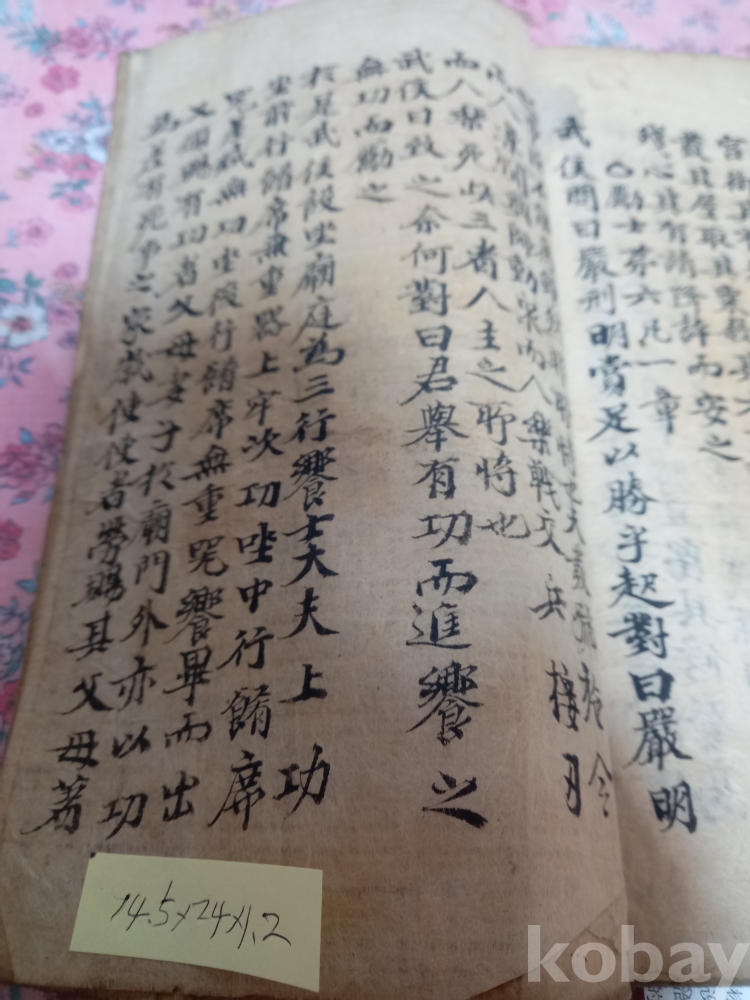 叢其屋取其粟
殘心其有請降許而安之
勵士第六凡一章
武侯問曰嚴刑明賞足以勝乎起對曰嚴明
施令
動衆而人樂戰交兵接刃
而人樂死此三者人主之所恃也
武侯曰致之奈何對曰君舉有功而進饗之
無功而勵之
於是武侯設坐廟庭為三行饗士大夫上功
坐前行餚席無重器上牢次功坐中行餚席
器差減無功坐後行餚席無重器饗畢而出
又頒賜有功者父母妻子於廟門外亦以功
為差有死事之家歲使使者勞賜其父母著
14.5×24×1.2
kobay